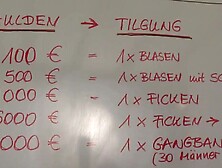 HULDEN → TILGUNG
100 € = 1x BLASEN
500 € = 1x BLASEN mit SC
000 € = 1x FICKEN
5000 € = 1x FICKEN →
000 € = 1x GANGBAN
(30 Männer